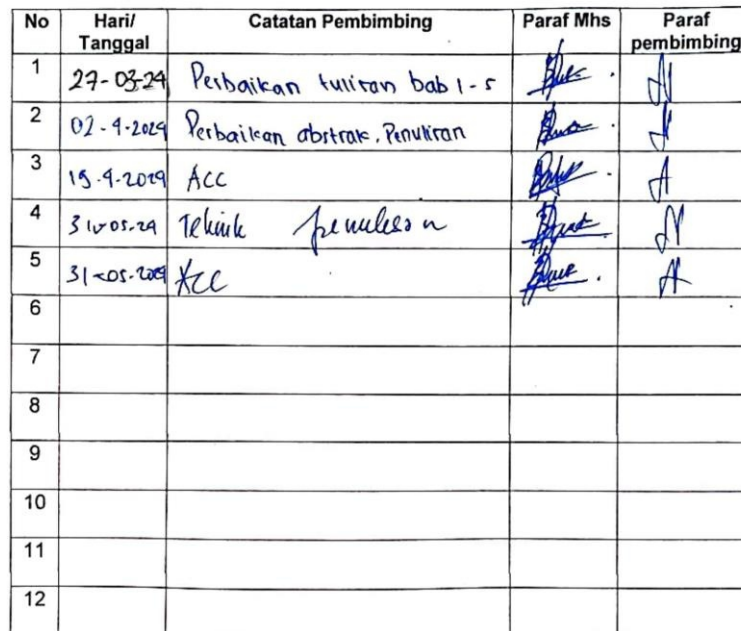 No Hari/ Tanggal Catatan Pembimbing Paraf Mhs Paraf pembimbing
1 27-03-24 Perbaikan tulisan bab 1-5
2 02-4-2024 Perbaikan abstrak, Penulisan
3 19-4-2024 ACC
4 31-05-24 Teknik penulisan
5 31-05-2024 ACC
6
7
8
9
10
11
12